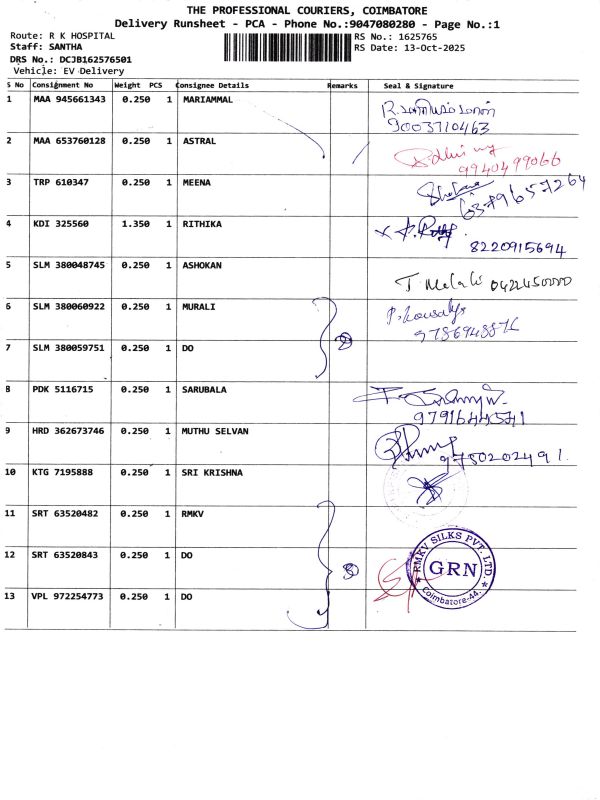 THE PROFESSIONAL COURIERS, COIMBATORE
Delivery Runsheet - PCA - Phone No.:9047080280 - Page No.:1
Route: R K HOSPITAL
RS No.: 1625765
Staff: SANTHA
RS Date: 13-Oct-2025
DRS No.: DCJB162576501
Vehicle: EV Delivery
S No Consignment No Weight PCS Consignee Details Remarks Seal & Signature
1 MAA 945661343 0.250 1 MARIAMMAL
9003710463
2 MAA 653760128 0.250 1 ASTRAL
9940499066
3 TRP 610347 0.250 1 MEENA
6379657264
4 KDI 325560 1.350 1 RITHIKA
8220915694
5 SLM 380048745 0.250 1 ASHOKAN
6 SLM 380060922 0.250 1 MURALI
7 SLM 380059751 0.250 1 DO
8 PDK 5116715 0.250 1 SARUBALA
9791644541
9 HRD 362673746 0.250 1 MUTHU SELVAN
9780202491.
10 KTG 7195888 0.250 1 SRI KRISHNA
11 SRT 63520482 0.250 1 RMKV
12 SRT 63520843 0.250 1 DO
RMKV SILKS PVT. LTD.
GRN
Coimbatore-44.
13 VPL 972254773 0.250 1 DO